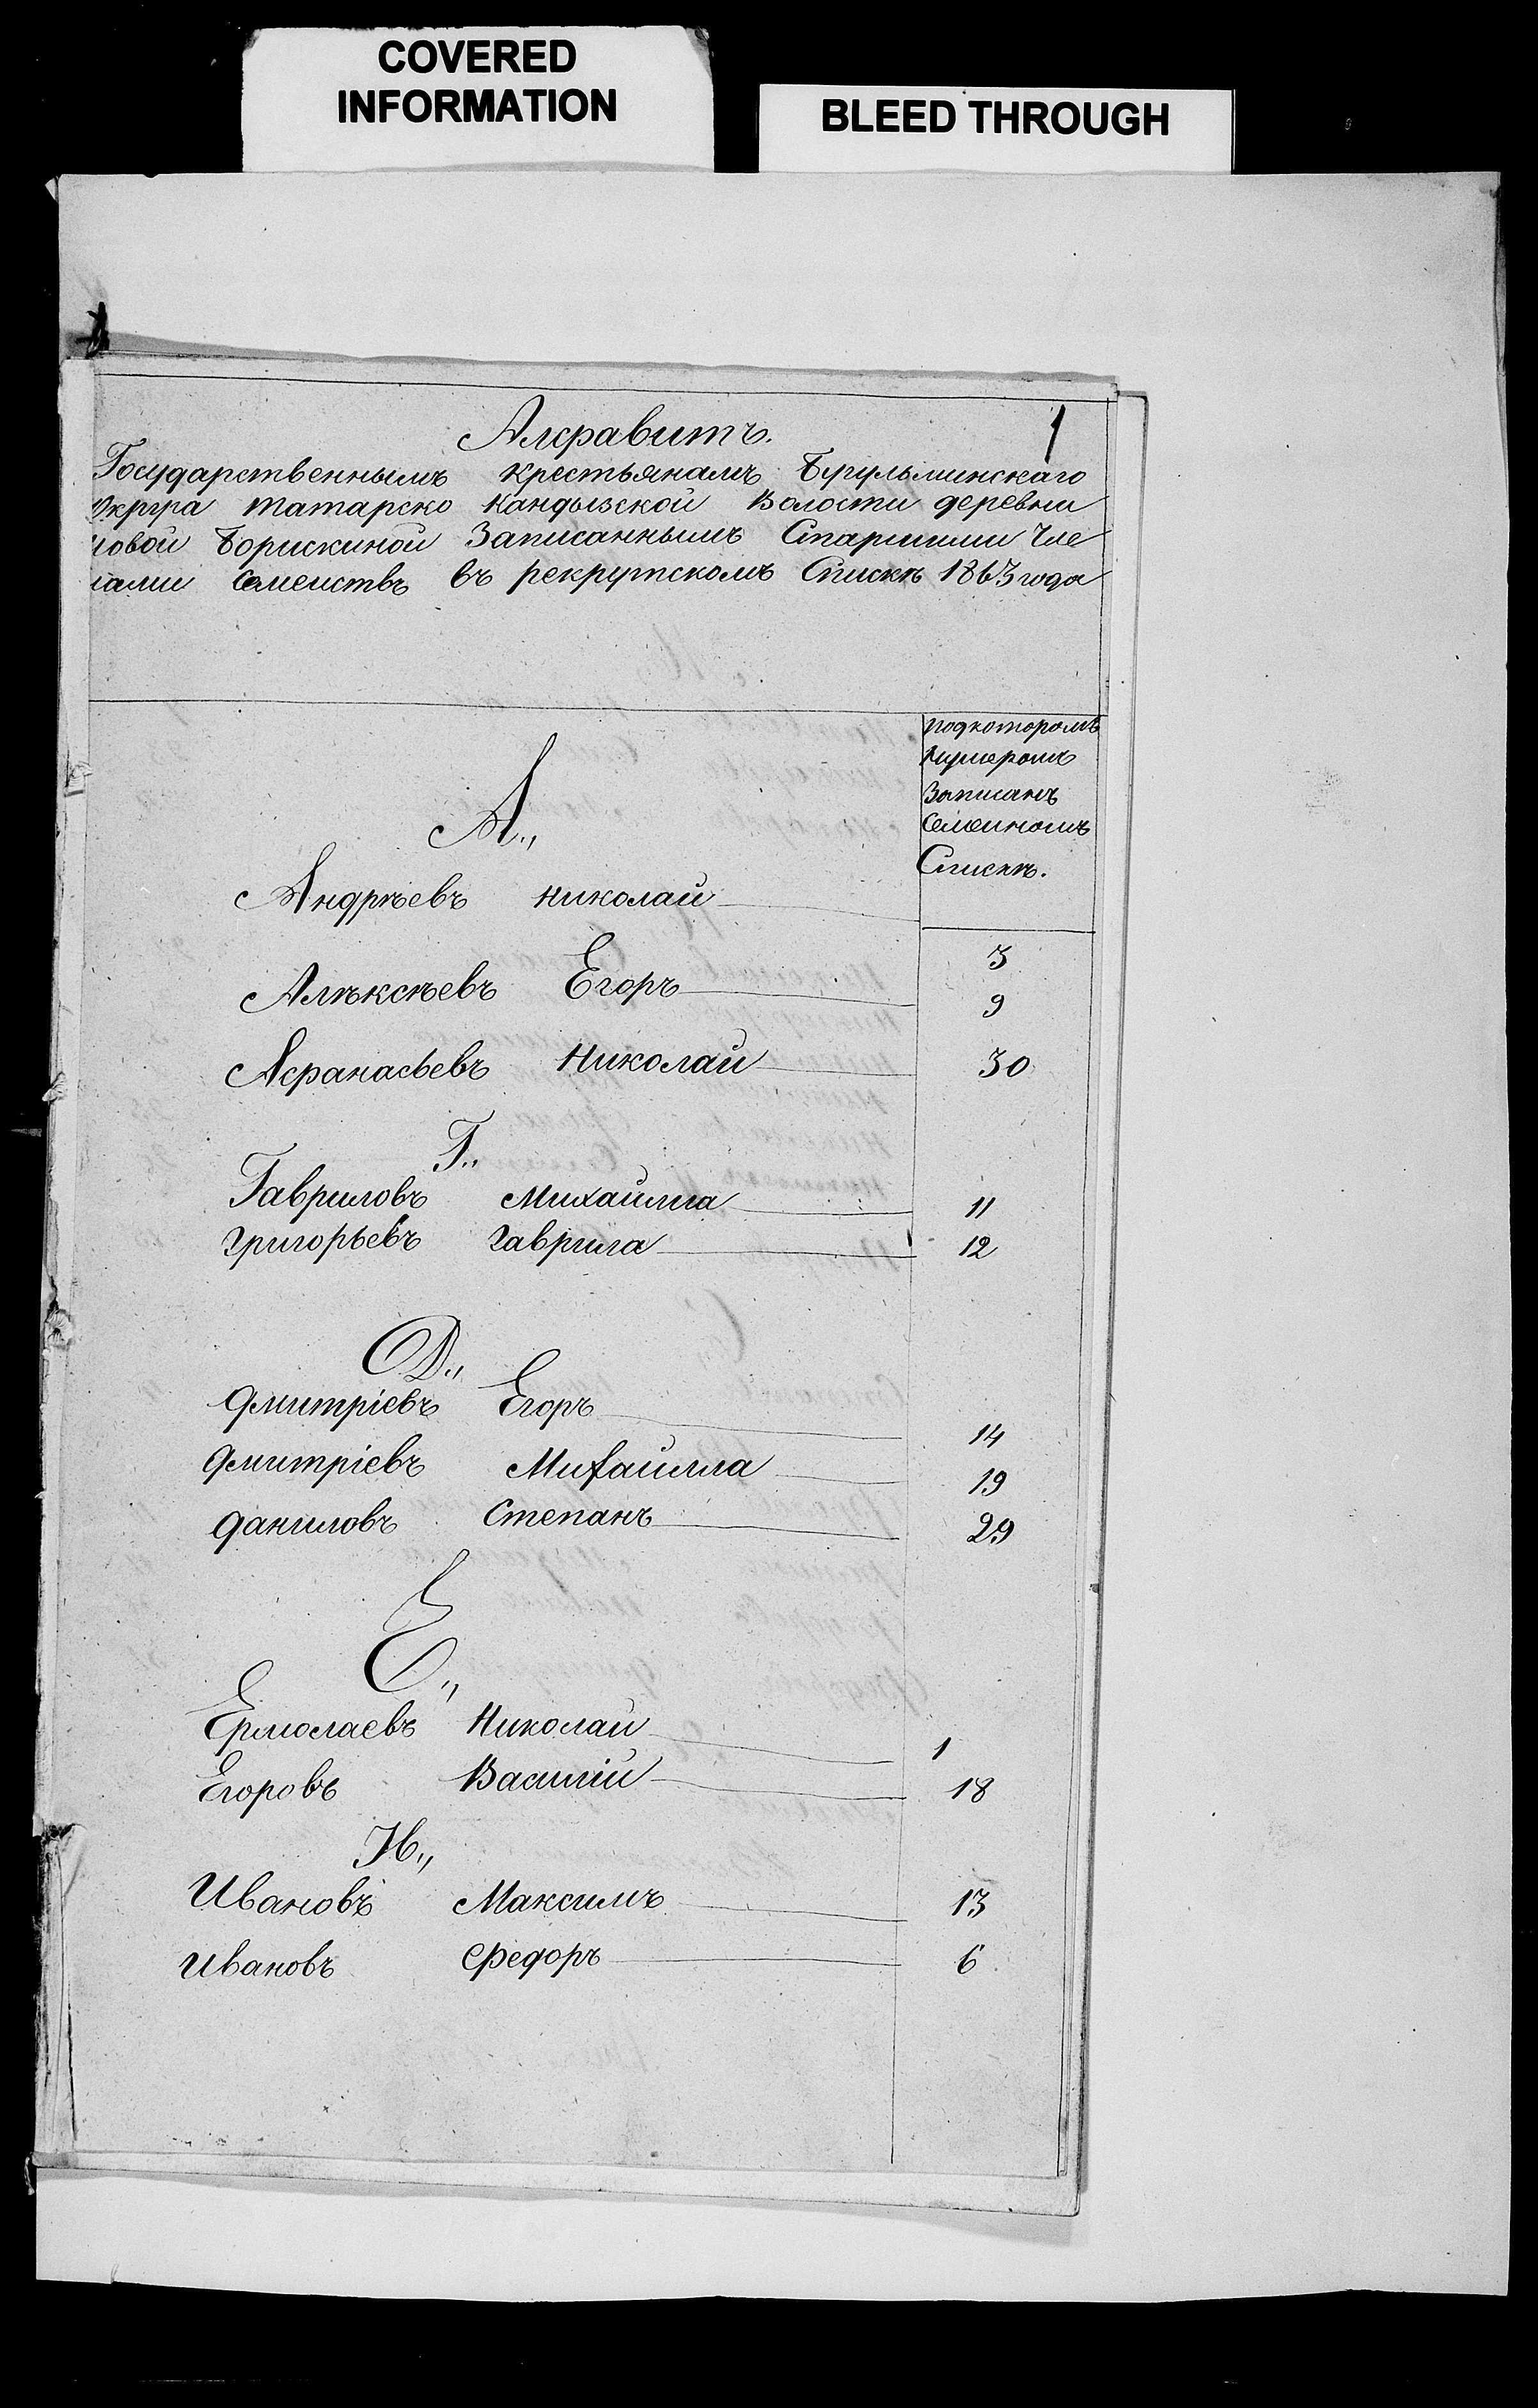 COVERED
INFORMATION
BLEED THROUGH
1
Алфавитъ.
Государственнымъ крестьянамъ Бугульминскаго
Округа татарско кандызской Волости деревни
новой Борискиной Записаннымъ Старшими Чле
нами Семеиствъ въ рекрутскомъ Спискѣ 1863 года
подкоторомъ
нумеромъ
Записанъ
Семеиномъ
Спискѣ.
А.,
Андрѣевъ николай 3
Алѣксѣевъ Егоръ 9
Афанасьевъ Николаи 30
Г.,
Гавриловъ Михаилла 11
григорьевъ гаврила 12
Д.,
дмитріевъ Егоръ 14
дмитріевъ Михаилла 19
даниловъ Степанъ 29
Е.,
Ермолаевъ Николаи 1
Егоровъ Василіи 18
И.,
Ивановъ Максимъ 13
ивановъ федоръ 6